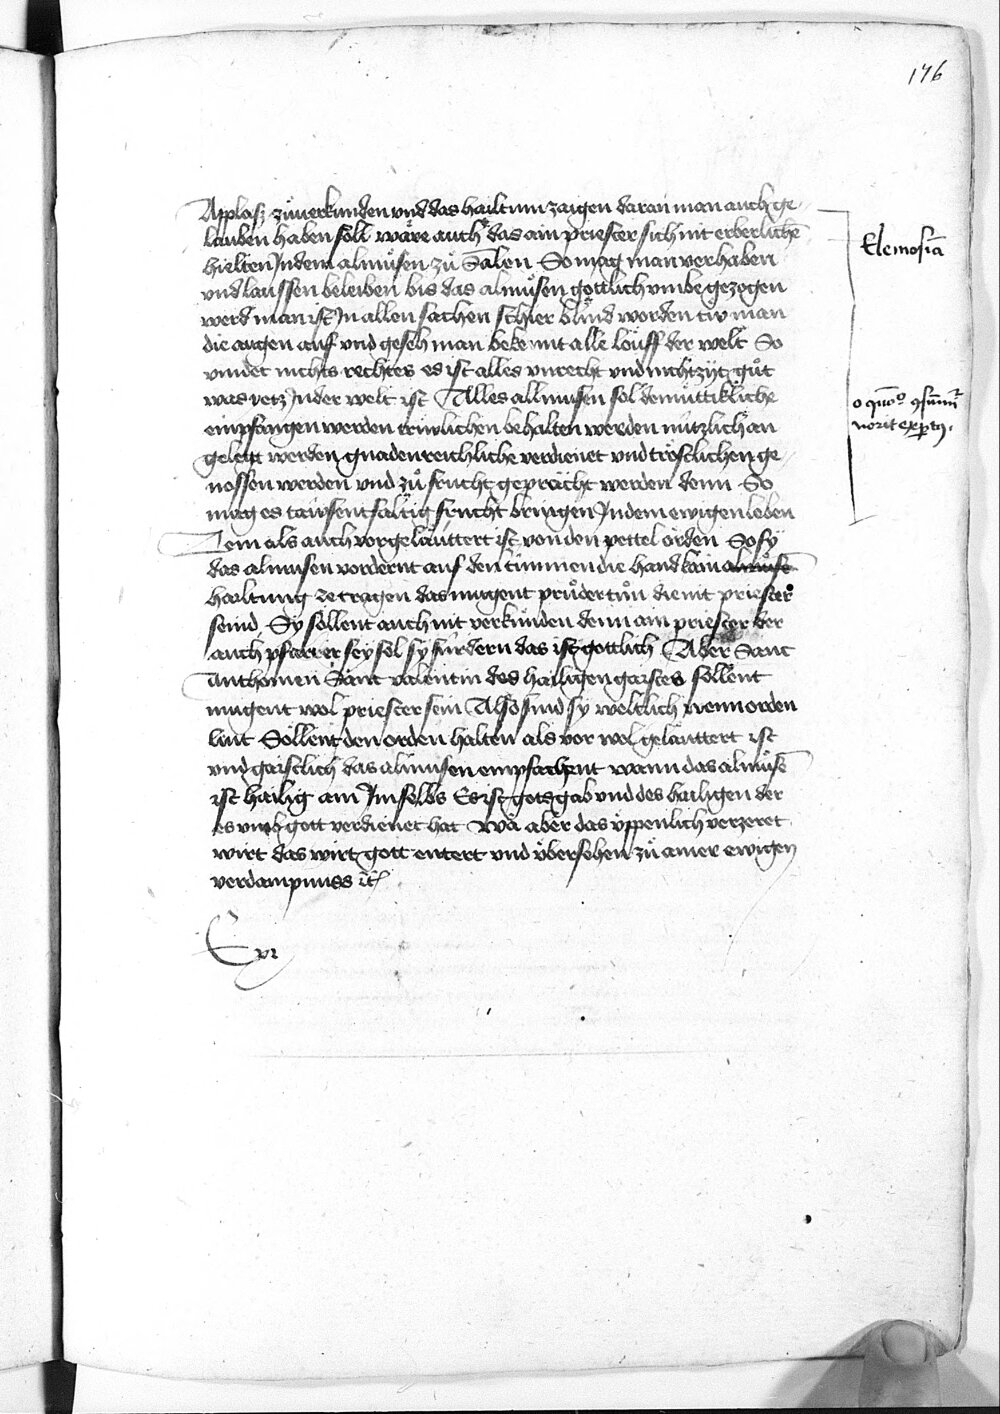 176
Applasz zůuerkunden vnd das hailtum zaigen daran man auch ge-
lauben haben söll wäre auch das ain priester sich nit erberlichē
hielten Jn dem almůsen zů Sālen So mag man verhaben
vnd laussen beleiben bis das almůsen göttlich vmbe gezogen
werd man ist Jn allen sachen schier blind worden tw man
die augen auf vnd geseh man bekennt alle löuff der welt So
vindet nichts rechtes es ist alles vnrecht vnd nichtzyt gůt
was yetz Jn der welt ist Alles allmusen sol demüttikliche
empfangen werden trüwlichen behalten werden nützlich an
gelegt werden gnadenreichliche verdienet vnd tröstlichen ge-
nossen werden vnd zů frucht gepracht werden denn So
mag es tawsentfaltig frucht bringen Jn dem ewigen leben
Jtem als auch vorgeläuttert ist von den pettel örden So sy
das almusen vordernt auf den tümmen die hand kain
hailtung ze tragen das mugent průder tůn die nit priester
seind Sy söllent auch nit verkünden denn ain priester der
auch pfarrer sey sol sy fürdern das ist göttlich Aber Sanc
Anthonien Sant valentin des hailigen gaistes söllent
mugent wol priester sein Also sind sy weltlich wenn orden
lüt Söllent den orden halten als vor wol geläuttert ist
vnd gaistlich das almusen empfachent wann das almůsē
ist hailig am Jm selbs Es ist gots gab vnd des hailigen der
es vmb gott verdienet hat Wä aber das üppenlich verzeret
wirt das wirt gott entert vnd übersehen zů ainer ewigen
verdampnuss
Elemosīa